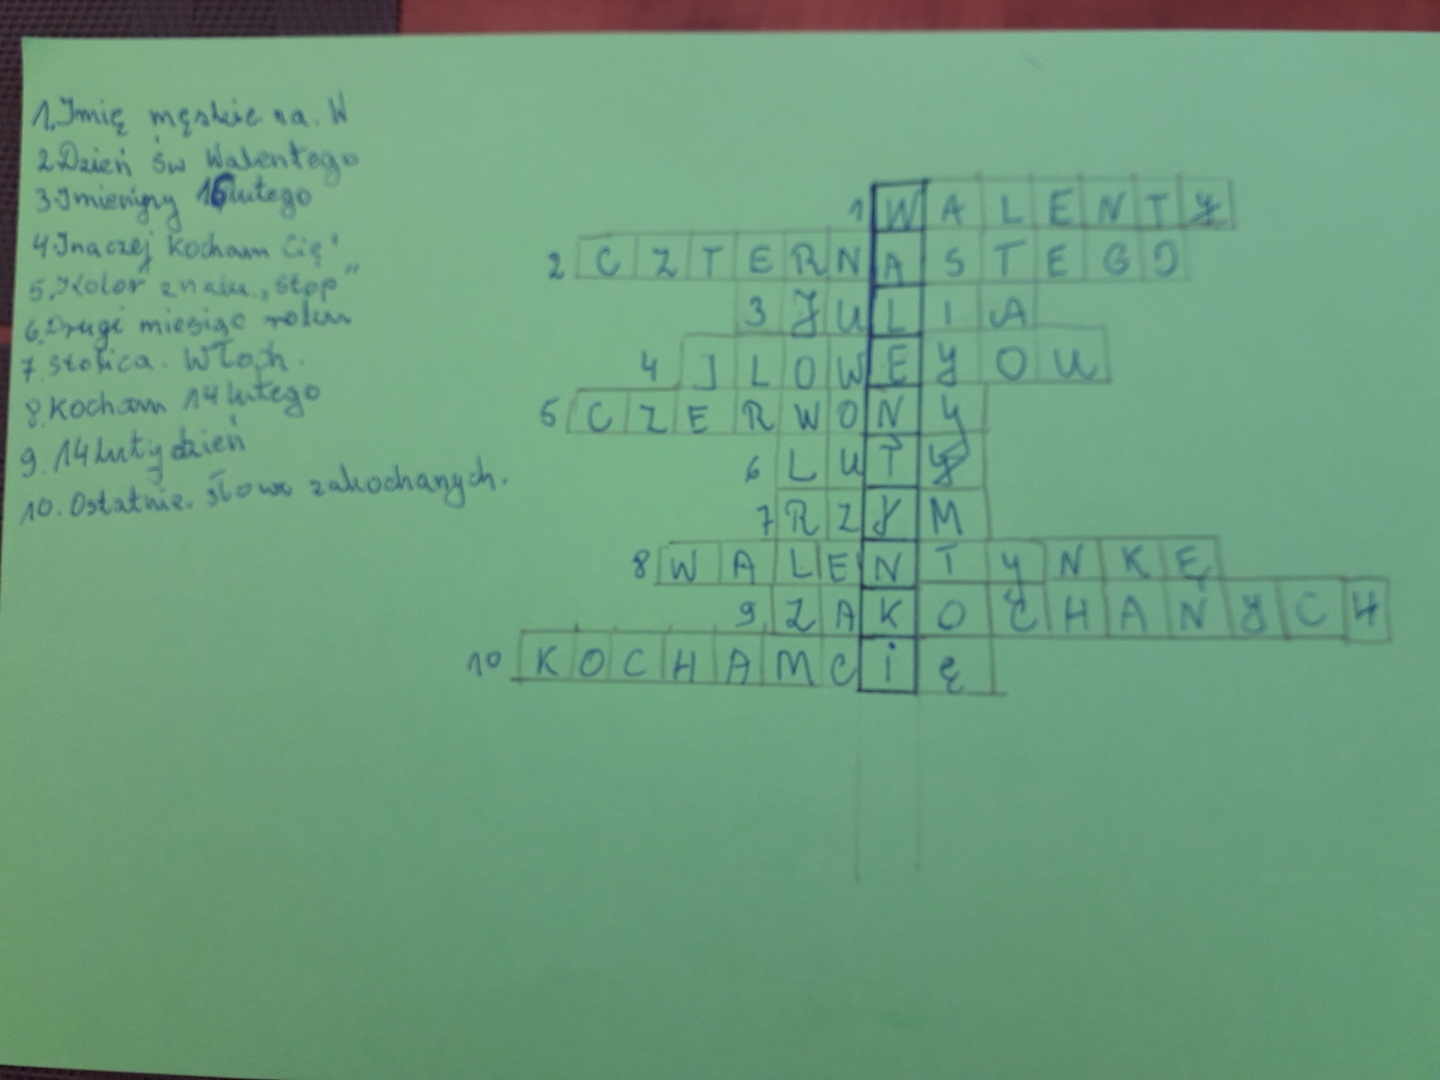 1. Imię męskie na. W
2. Dzień św Walentego
3. Imieniny 16 lutego
4. Inaczej kocham Cię"
5. Kolor znaku „stop"
6. Drugi miesiąc roku
7. Stolica. Włoch.
8. Kocham 14 lutego
9. 14 luty dzień
10. Ostatnie. słowa zakochanych.
1 WALENTY
2 CZTERNASTEGO
3 JULIA
4 ILOWEYOU
5 CZERWONY
6 LUTY
7 RZYM
8 WALENTYNKĘ
9. ZAKOCHANYCH
10 KOCHAMCię